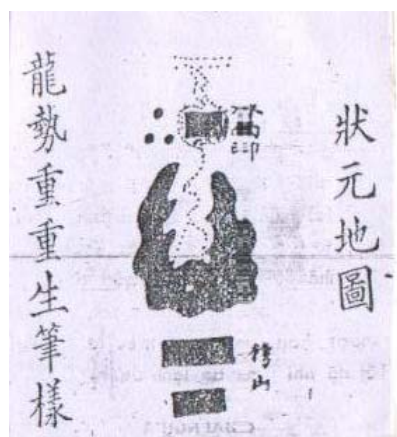 狀元地圖
榜山
龍勢重重生筆樣